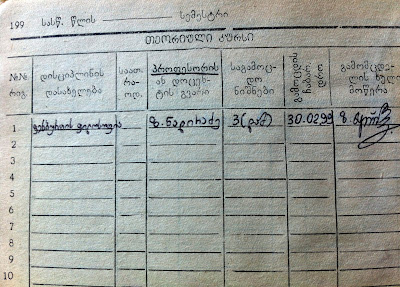 199 სასწ. წლის სემესტრი
თეორიული კურსი
№№ რიგ. დისციპლინის დასახელება საათ. რა- ოდ. პროფესორის ან დოცენ- ტის გვარი საგამოც- დო ნიშნები გამოცდის ჩაბარ. დრო გამომცდე- ლის ხელ- მოწერა
1 ზ. ნადირაძე 3(დამ) 30.0299 ზ.
2
3
4
5
6
7
8
9
10